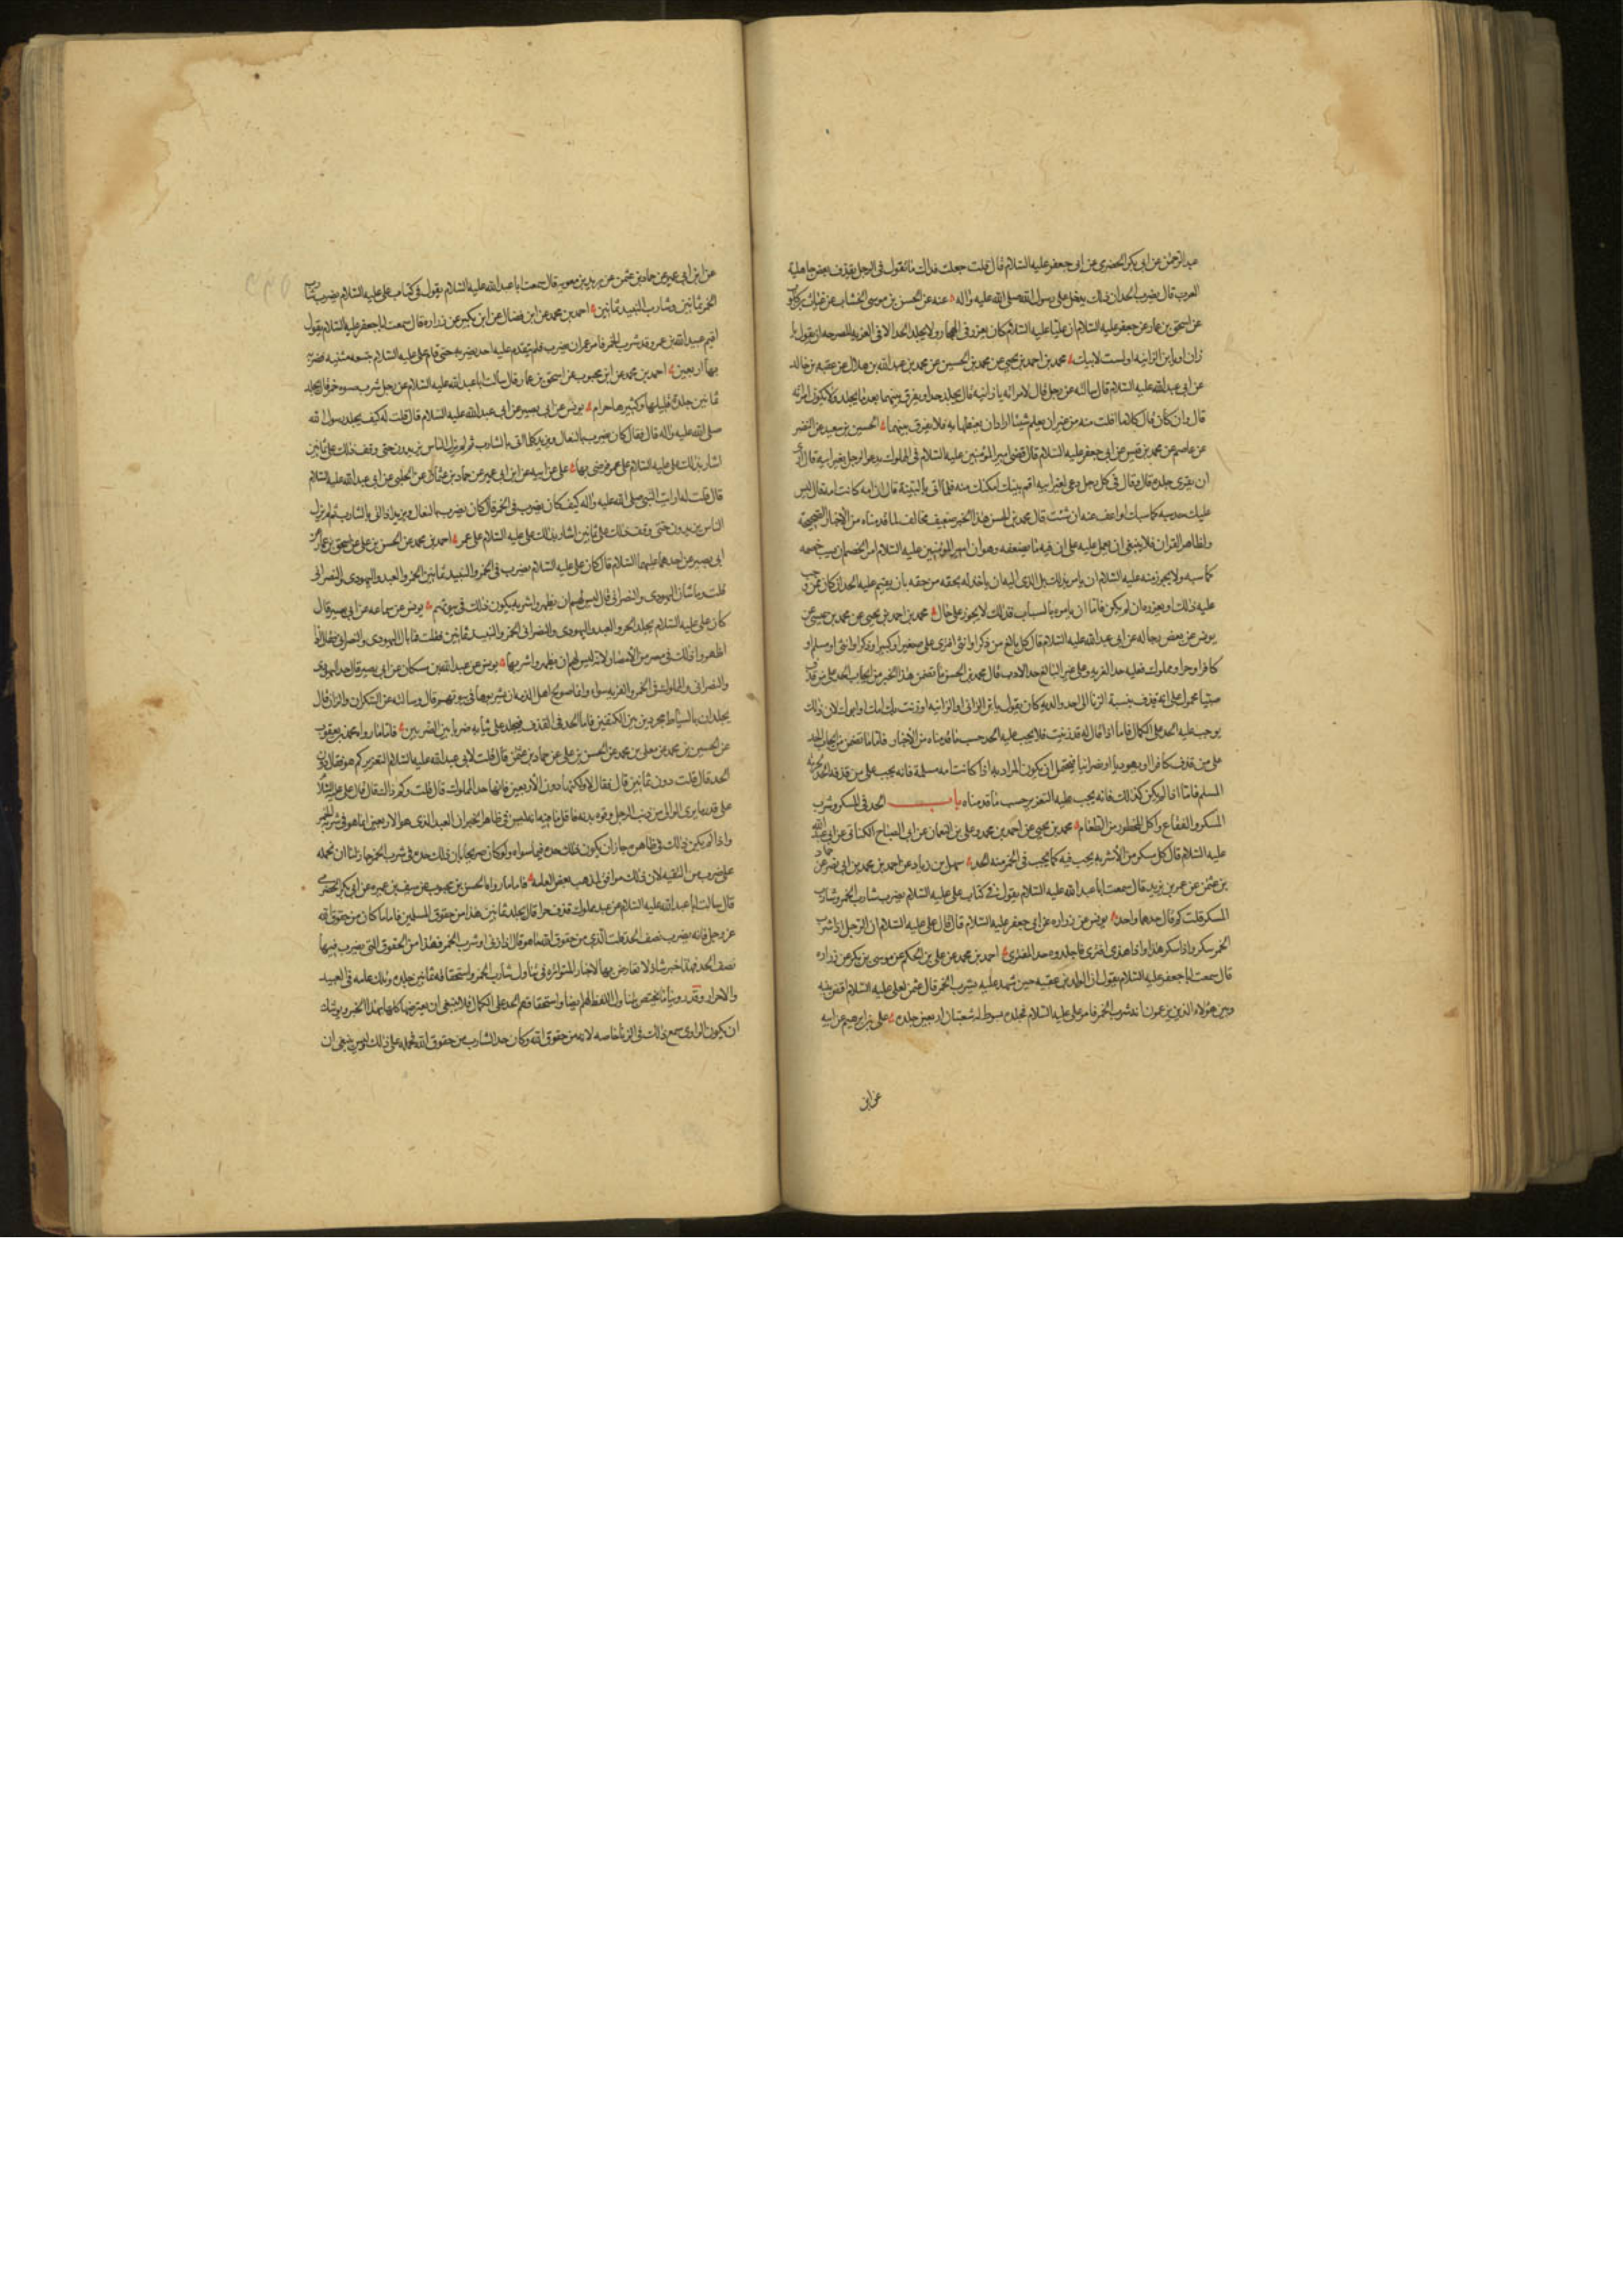 عبد الرحمن عن ابى بكر الحضرمى عن ابى جعفر عليه السلام قال قلت جعلت فداك ما تقول فى الرجل يقذف بعض جاهلية
العرب قال يضرب الحد ان ذلك يدخل على رسول الله صلى الله عليه واله عنه عن الحسن بن موسى الخشاب عن غياث بن كلوب
عن اسحق بن عمار عن جعفر عليه السلام ان عليا عليه السلام كان يعزر فى الهجاء ولا يجلد الحد الا فى الفرية المصرحة ان يقول يا
زان او يا بن الزانية او لست لابيك محمد بن احمد بن يحيى عن محمد بن الحسين عن محمد بن عبد الله بن هلال عن عقبه بن خالد
عن ابى عبد الله عليه السلام قال سالته عن رجل قال لامراته يا زانية قال يجلد حدا ويفرق بينهما بعد ما يجلد ولا تكون امراته
قال وان كان قال كلاما افلت منه من غير ان يعلم شيئا اراد ان يغيظها به فلا يفرق بينهما الحسين بن سعيد عن النضر
عن عاصم عن محمد بن قيس عن ابى جعفر عليه السلام قال قضى امير المؤمنين عليه السلام فى المملوك يدعو الرجل لغير ابيه قال ارى
ان يعرى جلده قال وقال فى كل رجل دعى لغير ابيه اقم بينتك امكنك منه فلما اتى بالبينة قال ان امه كانت امة قال ليس
عليك حد سبه كما سبك او اعف عنه ان شئت قال محمد بن الحسن هذا الخبر ضعيف مخالف لما قدمناه من الاخبار الصحيحة
ولظاهر القران فلا ينبغى ان يعمل عليه على ان فيه ما يضعفه وهو ان امير المؤمنين عليه السلام امر الخصم ان يسب خصمه
كما سبه ولا يجوز منه عليه السلام ان يامر بذلك بل الذى اليه ان ياخذ له بحقه من حقه بان يقيم عليه الحد ان كان ممن وجب
عليه ذلك او يعزره ان لم يكن فاما ان يامره بالسباب فذلك لا يجوز على حال محمد بن احمد بن يحيى عن محمد بن عيسى عن
يونس عن بعض رجاله عن ابى عبد الله عليه السلام قال كل بالغ من ذكر او انثى افترى على صغير او كبير او ذكر او انثى او مسلم او
كافر او حر او مملوك فعليه حد الفرية وعلى غير البالغ حد الادب قال محمد بن الحسن ما تضمن هذا الخبر من ايجاب الحد على من قذف
صبيا محمول على انه قذف بنسبة الزنا الى احد والديه كان يقول يا بن الزانى او الزانية او زنت بك امك او ابوك لان ذلك
يوجب عليه الحد على الكمال فاما اذا قال له قد زنيت فلا يجب عليه الحد حسب ما قدمناه من الاخبار فاما ما تضمن من ايجاب الحد
على من قذف كافرا او يهوديا او نصرانيا فيحتمل ان يكون المراد به اذا كانت امه مسلمة فانه يجب على من قذفه الحد لحرمة
المسلم فاما اذا لم يكن كذلك فانه يجب عليه التعزير حسب ما قدمناه باب الحد فى السكر وشرب
المسكر والفقاع واكل المحظور من الطعام محمد بن يحيى عن احمد بن محمد وعلى بن النعمان عن ابى الصباح الكنانى عن ابى عبد الله
عليه السلام قال كل مسكر من الاشربة يجب فيه كما يجب فى الخمر منه الحد سهل بن زياد عن احمد بن محمد بن ابى نصر عن حماد
بن عثمن عن عمر بن يزيد قال سمعت ابا عبد الله عليه السلام يقول فى كتاب على عليه السلام يضرب شارب الخمر وشارب
المسكر قلت كم قال حدهما واحد يونس عن زراره عن ابى جعفر عليه السلام قال قال على عليه السلام ان الرجل اذا شرب
الخمر سكر واذا سكر هذى واذا هذى افترى فاجلدوه حد المفترى احمد بن محمد عن على بن الحكم عن موسى بن بكر عن زراره
قال سمعت ابا جعفر عليه السلام يقول ان الوليد بن عقبه حين شهد عليه بشرب الخمر قال عثمن لعلى عليه السلام اقض بينه
وبين هؤلاء الذين يزعمون انه شرب الخمر فامر على عليه السلام فجلده بسوط له شعبتان اربعين جلده على بن ابرهيم عن ابيه
عن ابن
عن ابن ابى عمير عن حماد بن عثمن عن بريد بن معويه قال سمعت ابا عبد الله عليه السلام يقول فى كتاب على عليه السلام يضرب شارب
الخمر ثمانين وشارب النبيذ ثمانين احمد بن محمد عن ابن فضال عن ابن بكير عن زراره قال سمعت ابا جعفر عليه السلام يقول
اقيم عبيد الله بن عمر وقد شرب الخمر فامر عمر ان يضرب فلم يتقدم عليه احد يضربه حتى قام على عليه السلام بنسعه مثنيه فضربه
بها اربعين احمد بن محمد عن ابن محبوب عن اسحق بن عمار قال سالت ابا عبد الله عليه السلام عن رجل شرب حسوه خمر قال يجلد
ثمانين جلدة قليلها وكثيرها حرام يونس عن ابى بصير عن ابى عبد الله عليه السلام قال قلت له كيف يجلد رسول الله
صلى الله عليه واله قال فقال كان يضرب بالنعال ويزيد كلما اتى بالشارب ثم لم يزل الناس يزيدون حتى وقف ذلك على ثمانين
اشار بذلك على عليه السلام على عمر فرضى بها على عن ابيه عن ابن ابى عمير عن حماد بن عثمان عن الحلبى عن ابى عبد الله عليه السلام
قال قلت له ارايت النبى صلى الله عليه واله كيف كان يضرب فى الخمر قال كان يضرب بالنعال ويزيد اذا اتى بالشارب ثم لم يزل
الناس يزيدون حتى وقف ذلك على ثمانين اشار بذلك على عليه السلام على عمر احمد بن محمد عن الحسن بن على عن اسحق بن عمار عن
ابى بصير عن احدهما عليهما السلام قال كان على عليه السلام يضرب فى الخمر والنبيذ ثمانين الحر والعبد واليهودى والنصرانى
قلت وما شان اليهودى والنصرانى قال ليس لهم ان يظهروا شربه يكون ذلك فى بيوتهم يونس عن سماعه عن ابى بصير قال
كان على عليه السلام يجلد الحر والعبد واليهودى والنصرانى فى الخمر والنبيذ ثمانين فقلت ما بال اليهودى والنصرانى فقال اذا
اظهروا ذلك فى مصر من الامصار لانه ليس لهم ان يظهروا شربها يونس عن عبد الله بن مسكان عن ابى بصير قال حد اليهودى
والنصرانى والمملوك فى الخمر والفرية سواء وانما صولح اهل الذمه ان يشربوها فى بيوتهم قال وسالته عن السكران والزانى قال
يجلدان بالسياط مجردين بين الكتفين فاما الحد فى القذف فيجلد على ثيابه ضربا بين الضربين فاما ما رواه محمد بن يعقوب
عن الحسين بن محمد عن معلى بن محمد عن الحسن بن على عن حماد بن عثمن قال قلت لابى عبد الله عليه السلام التعزير كم هو فقال دون
الحد قال قلت دون ثمانين قال فقال لا ولكنها دون الاربعين فانها حد المملوك قال قلت وكم ذاك فقال قال على عليه السلام
على قدر ما يرى الوالى من ذنب الرجل وقوة بدنه فاقل ما فيه انه ليس فى ظاهر الخبر ان العبد الذى هو الاربعين انما هو فى شرب الخمر
واذا لم يكن ذلك فى ظاهره جاز ان يكون ذلك حده فيما سواه ولو كان صريحا بان ذلك حده فى شرب الخمر جاز لنا ان نحمله
على ضرب من التقيه لان ذلك موافق لمذهب بعض العامه فاما ما رواه الحسن بن محبوب عن سيف بن عميره عن ابى بكر الحضرمى
قال سالت ابا عبد الله عليه السلام عن عبد مملوك قذف حرا قال يجلد ثمانين هذا من حقوق المسلمين فاما ما كان من حقوق الله
عز وجل فانه يضرب نصف الحد قلت الذى من حقوق الله ما هو قال اذا زنى او شرب الخمر فهذا من الحقوق التى يضرب فيها
نصف الحد فهذا خبر شاذ لا تعارض بها الاخبار المتواتره فى تناول شارب الخمر واستحقاقه ثمانين جلده وذلك عامه فى العبيد
والاحرار وقد روينا ما يختص بتناول اللفظ لهم ايضا واستحقاقهم الحد على الكمال فلا ينبغى ان يعترضها كلها بهذا الخبر ويوشك
ان يكون الراوى سمع ذلك فى الزنا خاصه لانه من حقوق الله وكان حد الشارب من حقوق الله فحمله على ذلك ان